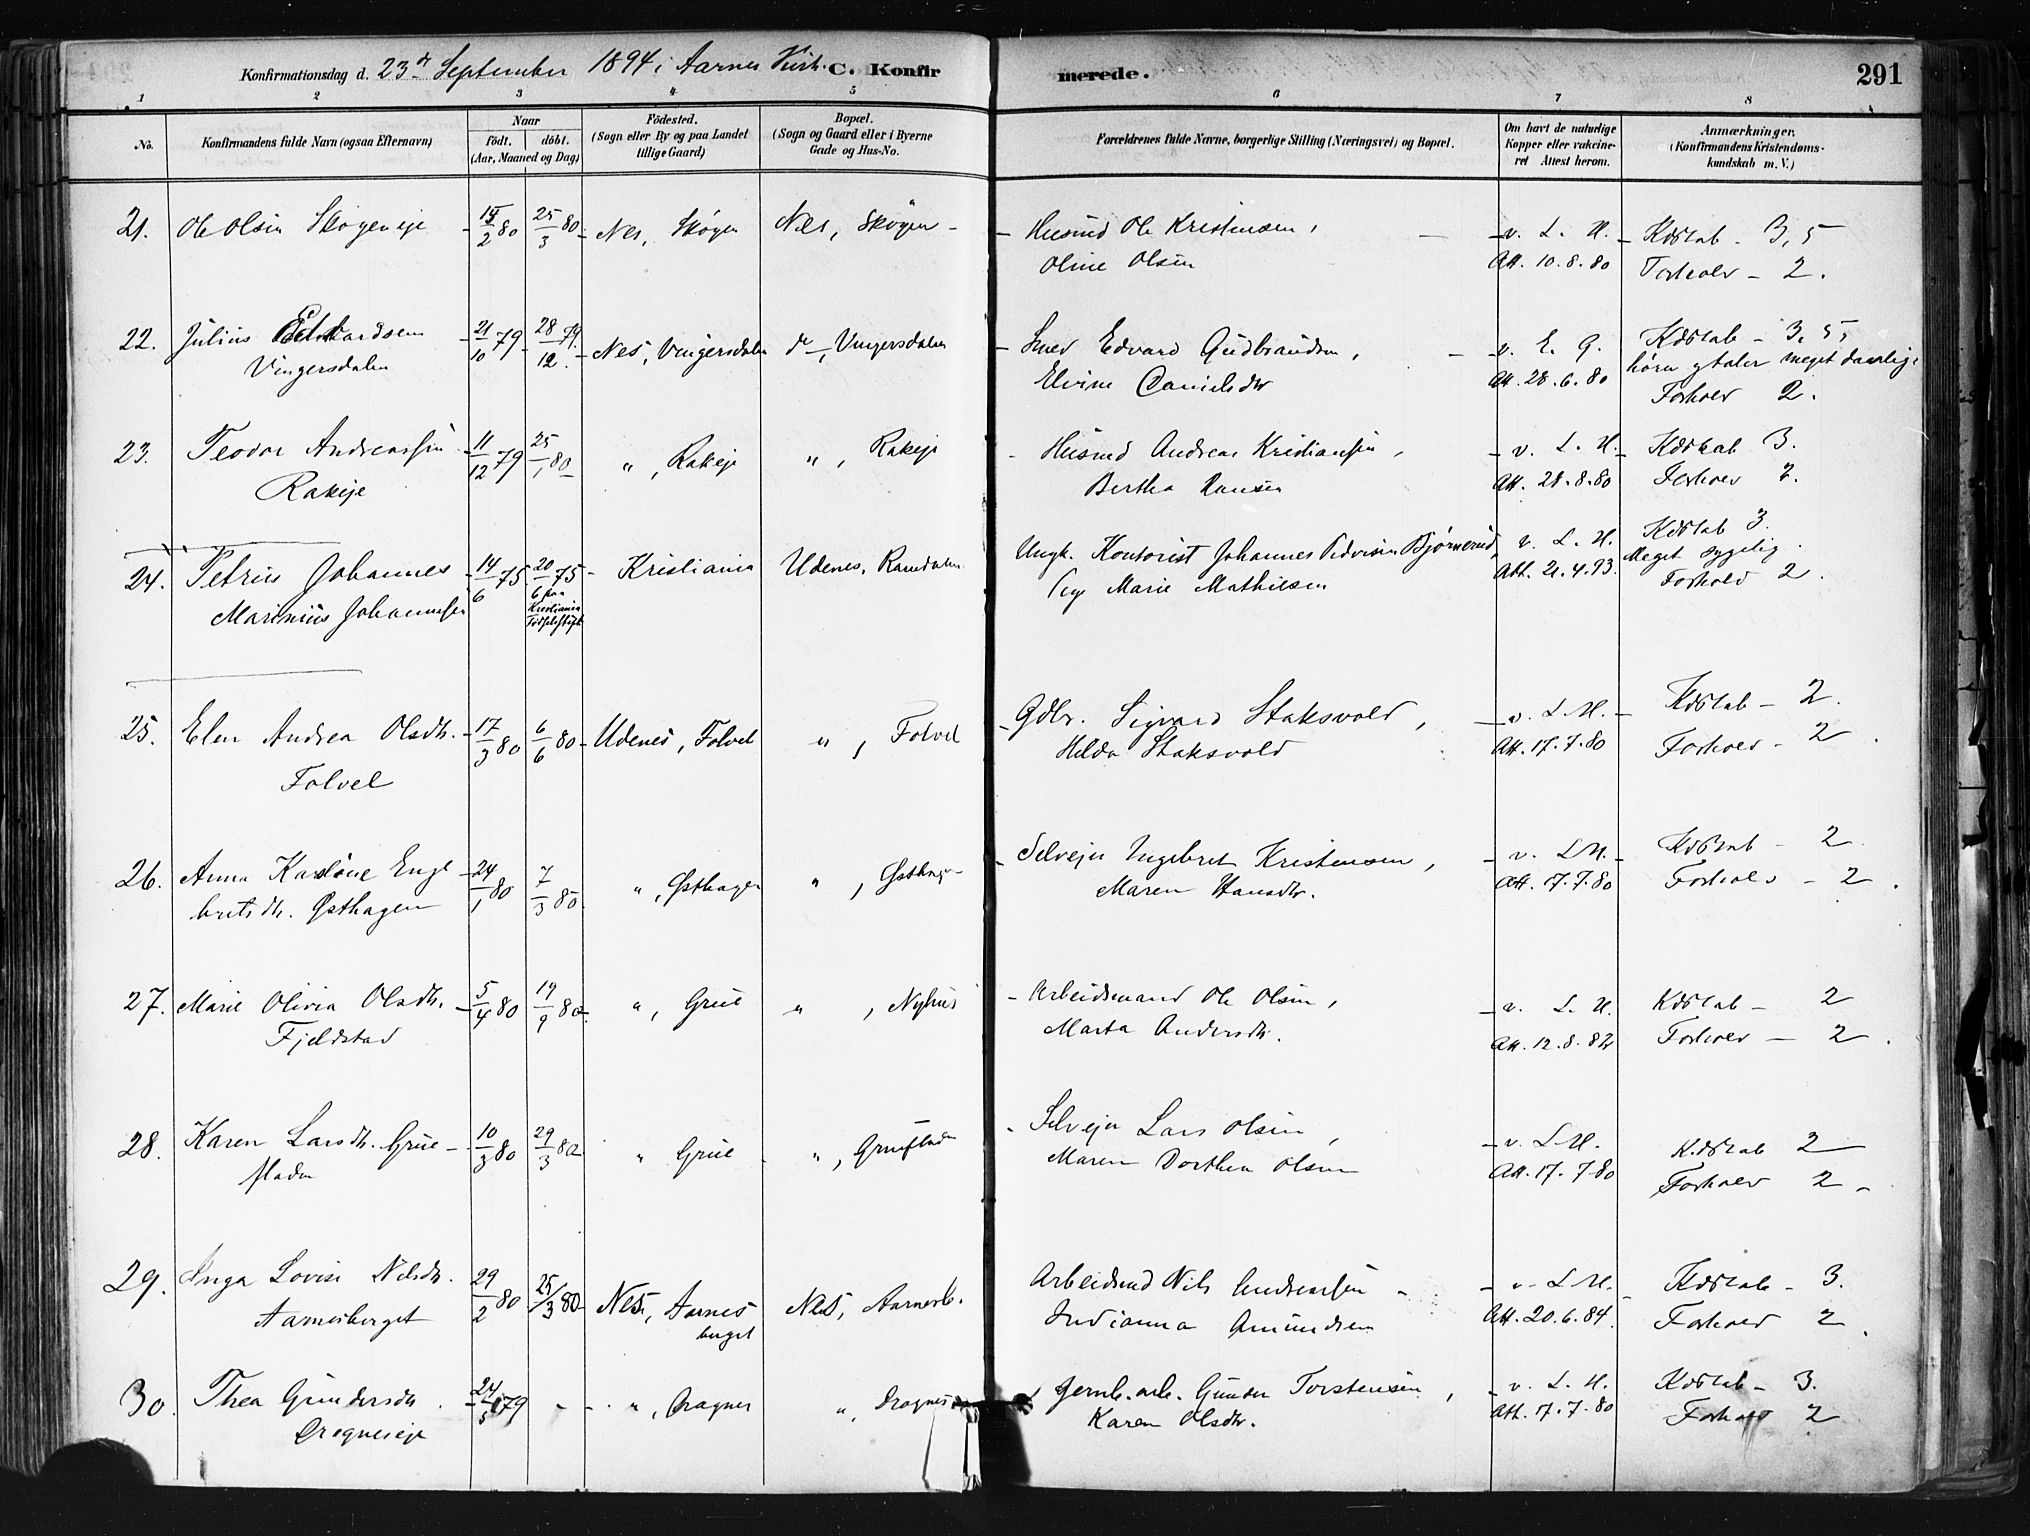 Konfirmationsdag d. 23de September 1894 i Aarnes Kirke. C. Konfirmerede. 291
1 2 3 4 5 6 7 8
No.
Konfirmandens fulde Navn (ogsaa Efternavn)
Naar
født. døbt.
(Aar, Maaned og Dag)
Fødested.
(Sogn eller By og paa Landet
tillige Gaard)
Bopæl.
(Sogn og Gaard eller i Byerne
Gade og Hus-No.
Forældrenes fulde Navne, borgerlige Stilling (Næringsvei) og Bopæl.
Om havt de naturlige
Kopper eller vakcine-
ret Attest herom.
Anmærkninger.
(Konfirmandens Kristendoms-
kundskab m. V.)
21. Ole Olsen Skøgeneje 15/2 80 25/3 80 Nes, Skøgen Nes, Skøgen – Husmd Ole Kristensen, v. L. H. Kdskab – 3,5
Oline Olsen Att. 10.8.80 Forhold – 2.
22. Julius Edvardsen 21/10 79 28/12 79 Nes, Vingersdalen do, Vingersdalen Smed Edvard Gudbrandsen, v. E. G. Kdskab – 3,5,
Vingersdalen Elvine Danielsdtr Att. 28.6.80 hører og taler meget daarlig.
Forhold 2.
23. Teodor Andreassen 11/12 79 25/1 80 " , Rakeje " , Rakeje Husmd Andreas Kristiansen, v. L. H. Kdskab 3.
Rakeje Bertha Hansen Att. 28.8.80 Forhold 2.
24. Petrus Johannes 14/6 75 20/6 75 Kristiania Udenes, Ramdalen Ungk. Kontorist Johannes Pedersen Bjørnerud v. L. H. Kdskab 3.
Marinius Johannesen paa Kristiania Fødselsstift. Pige Marie Mathisen Att. 21.4.93. Meget sygelig.
Forhold 2.
25. Elen Andrea Olsdtr. 17/3 80 6/6 80 Udenes, Folvel " , Folvel Gdbr. Sigvard Staksvold, v. L. H. Kdskab – 2.
Folvel Hilda Staksvold Att. 17.7.80 Forhold – 2.
26. Anna Karoline Engebretsdtr. Østhagen 24/1 80 7/3 80 " , Østhagen " , Østhagen Selvejer Ingebret Kristensen, v. L. H. Kdskab – 2
Maren Hansdtr. Att. 17.7.80 Forhold – 2.
27. Marie Olivia Olsdtr. 5/4 80 19/9 80 " , Grue " , Nyhus Arbeidsmand Ole Olsen, v. L. H. Kdskab – 2
Fjeldstad Marta Andersdtr. Att. 12.8.82 Forhold – 2.
28. Karen Larsdtr. Grue- 10/3 80 29/3 80 " Grue " , Gruefladen Selvejer Lars Olsen, v. L. H. Kdskab 2
fladen Maren Dorthea Olsen Att. 17.7.80 Forhold 2
29. Inga Lovise Nilsdtr. 29/2 80 25/3 80 Nes, Aarnesberget Nes, Aarnesb. Arbeidsmd Nils Andreassen v. L. H. Kdskab – 3.
Aarnesberget Indianna Amundsen Att. 20.6.84. Forhold 2.
30. Thea Gundersdtr. 24/5 79 – " , Dragnes " , Dragnes Jernb. arb. Gunder Torstensen, v. L. H. Kdskab – 3.
Dragneseje Karen Olsdtr. Att. 17.7.80 Forhold 2